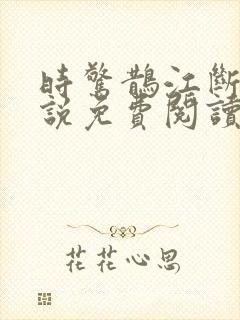 時驚鵲江斷
說免費閱讀
花花心思